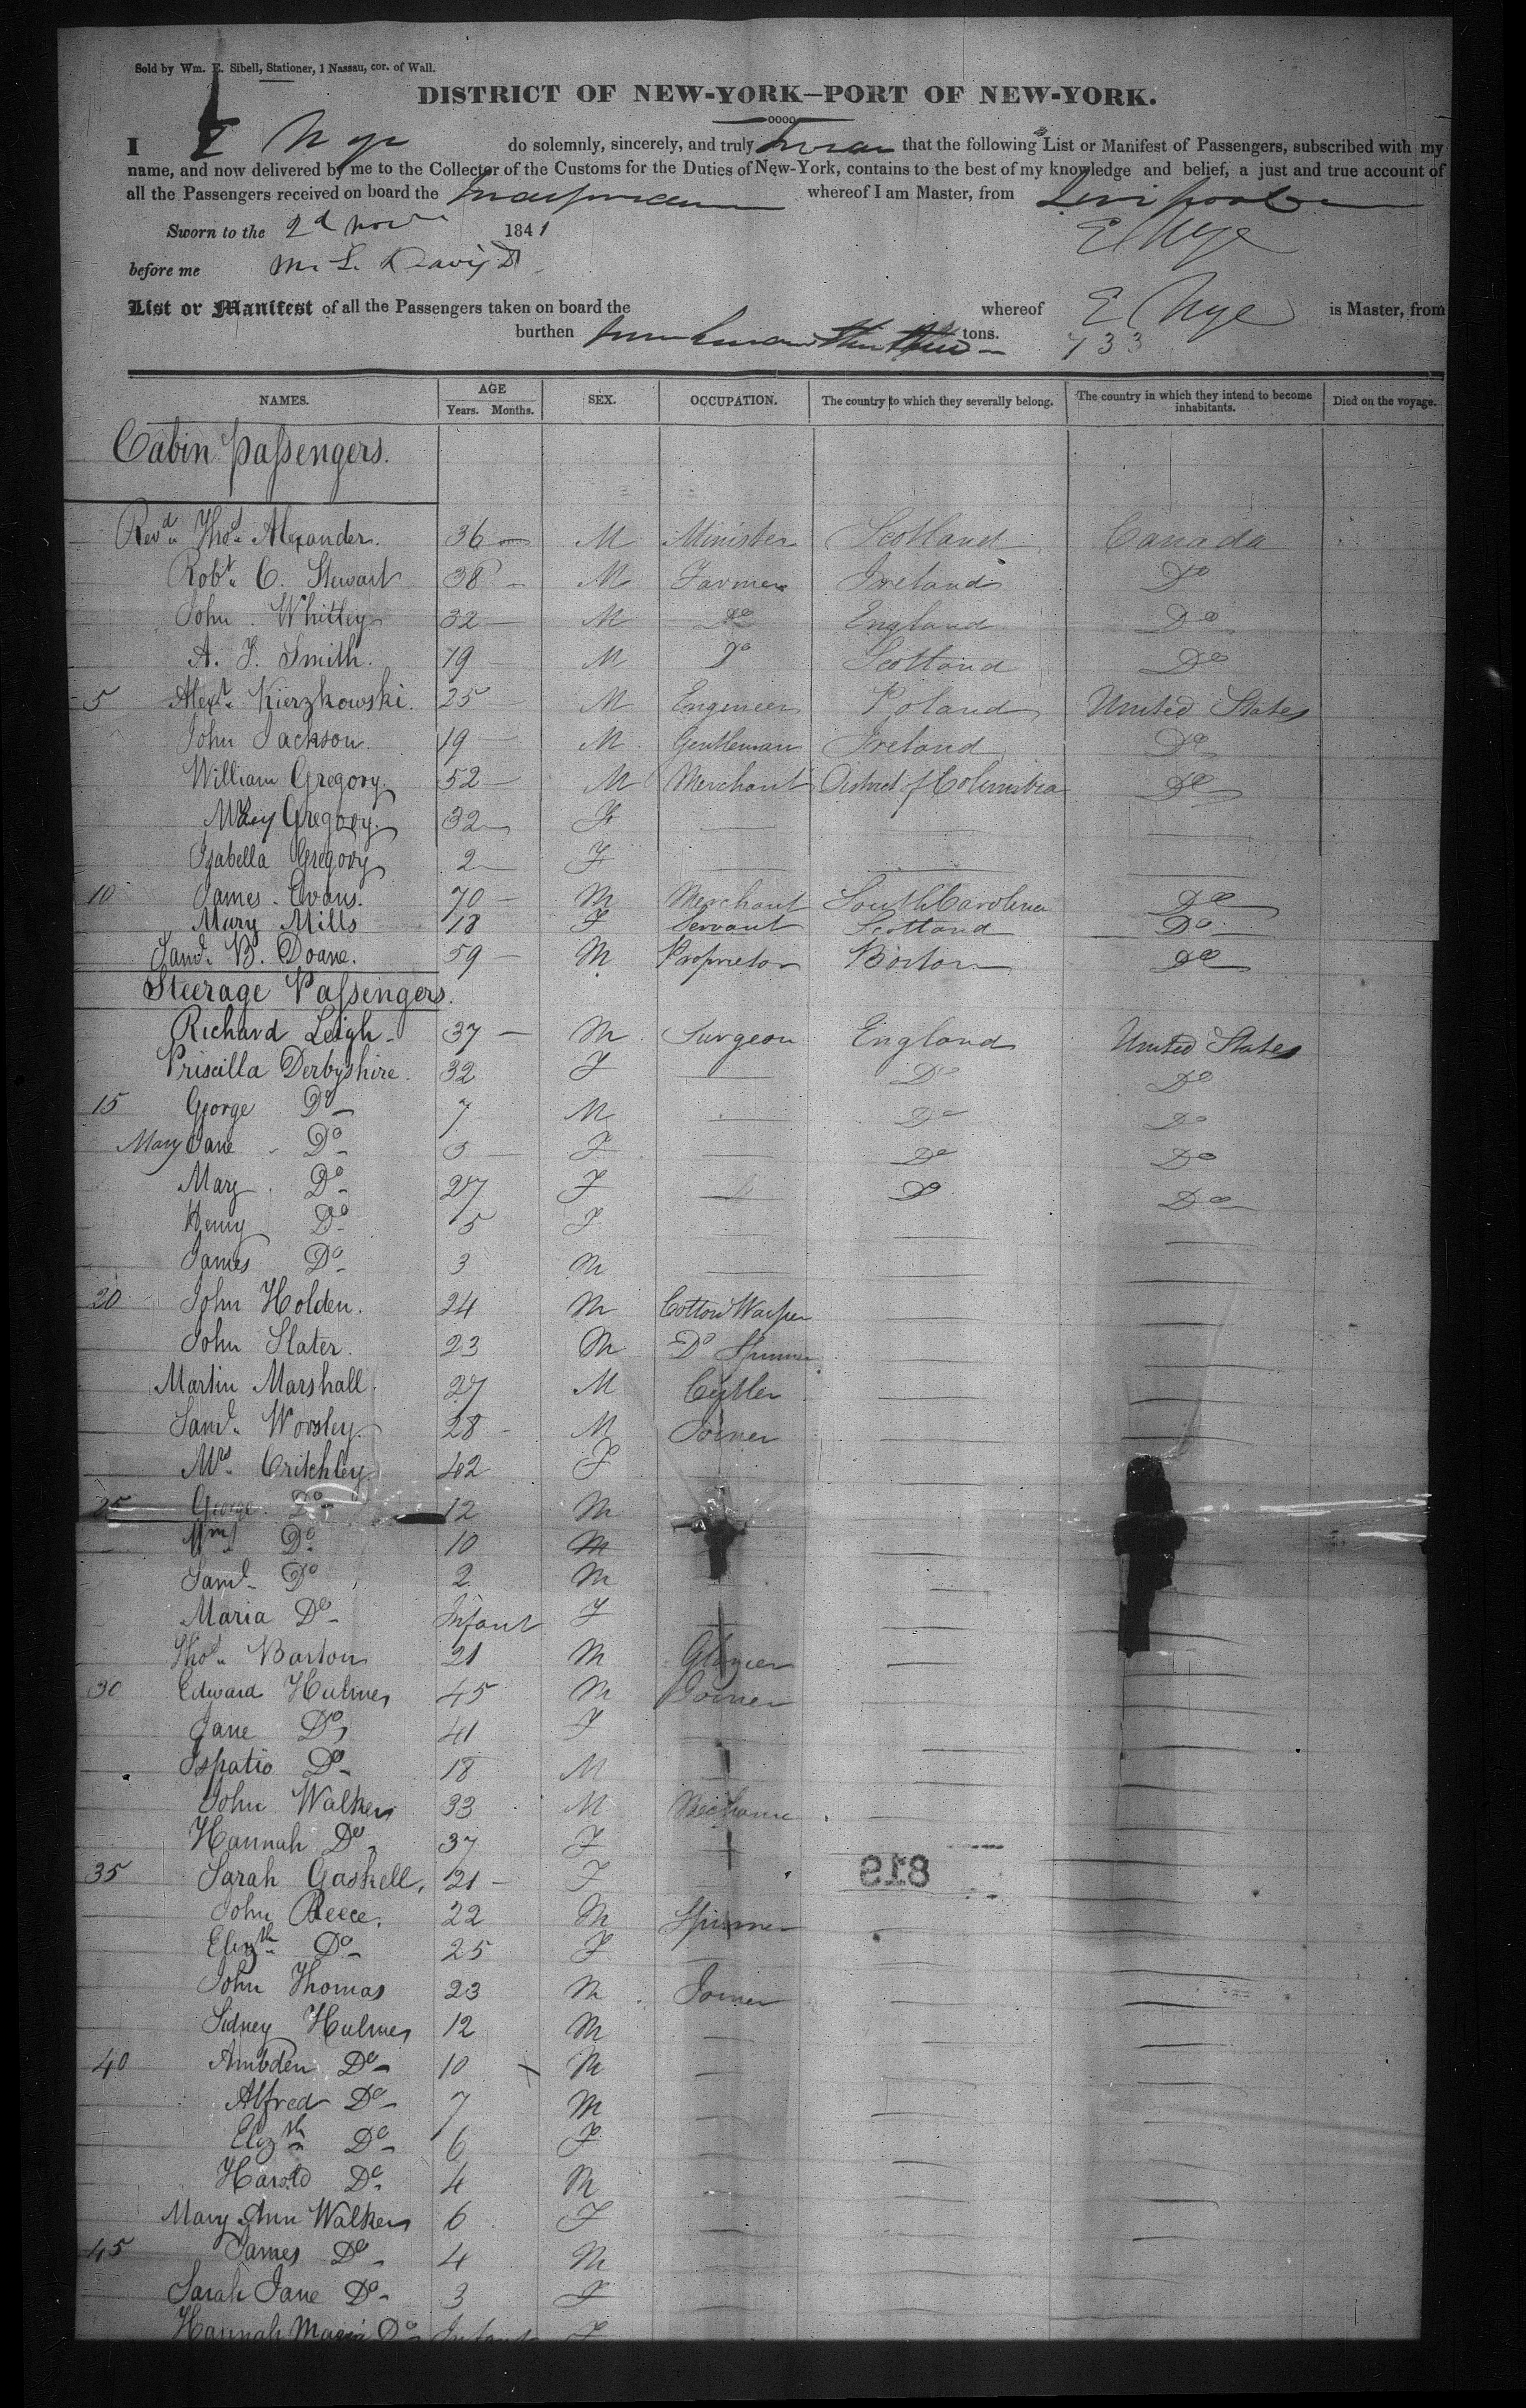 Sold by Wm. E. Sibell, Stationer, 1 Nassau, cor. of Wall.
DISTRICT OF NEW-YORK—PORT OF NEW-YORK.
I E Nye do solemnly, sincerely, and truly swear that the following List or Manifest of Passengers, subscribed with my
name, and now delivered by me to the Collector of the Customs for the Duties of New-York, contains to the best of my knowledge and belief, a just and true account of
all the Passengers received on board the whereof I am Master, from Liverpool
Sworn to the 2d Nov 1841 E Nye
before me M. L. Davis
List or Manifest of all the Passengers taken on board the whereof E Nye is Master, from
burthen tons. 733
NAMES. AGE SEX. OCCUPATION. The country to which they severally belong. The country in which they intend to become inhabitants. Died on the voyage.
Years. Months.
Cabin Passengers.
Revd. Thos. Alexander. 36 M Minister Scotland Canada
Robt. C. Stewart 38 M Farmer Ireland Do
John Whitley 32 M Do England Do
A. J. Smith. 19 M Do Scotland Do
5 Alexr. Kierzkowski. 25 M Engineer Poland United States
John Jackson. 19 M Gentleman Ireland Do
William Gregory 52 M Merchant District of Columbia Do
Gregory. 32 F
Isabella Gregory 2 F
10 James Evans. 70 M Merchant South Carolina Do
Mary Mills 18 F Servant Scotland Do
Saml. B. Doane. 59 M Proprietor Boston Do
Steerage Passengers.
Richard Leigh 37 M Surgeon England United States
Priscilla Derbyshire. 32 F Do Do
15 George Do 7 M Do Do
Mary Jane Do F Do Do
Mary Do 27 F Do Do
Henry Do 5 F
James Do 3 M
20 John Holden. 24 M Cotton Warper
John Slater. 23 M Do Spinner
Martin Marshall. 27 M Cutler
Saml. Worsley. 28 M Joiner
Mrs. Critchley 42 F
25 George Do 12 M
Wm Do 10 M
Saml. Do 2 M
Maria Do Infant F
Thos. Barton 21 M Glazier
30 Edward Hulmes 45 M Joiner
Jane Do 41 F
Do 18 M
John Walker 33 M Mechanic
Hannah Do 37 F
35 Sarah Gaskell. 21 F
819
John Reece. 22 M Spinner
Elizth Do 25 F
John Thomas 23 M Joiner
Sidney Hulmes 12 M
40 Do 10 M
Alfred Do 7 M
Elizth Do 6 F
Harold Do 4 M
Mary Ann Walker 6 F
45 James Do 4 M
Sarah Jane Do 3 F
Hannah Maria Do Infant F